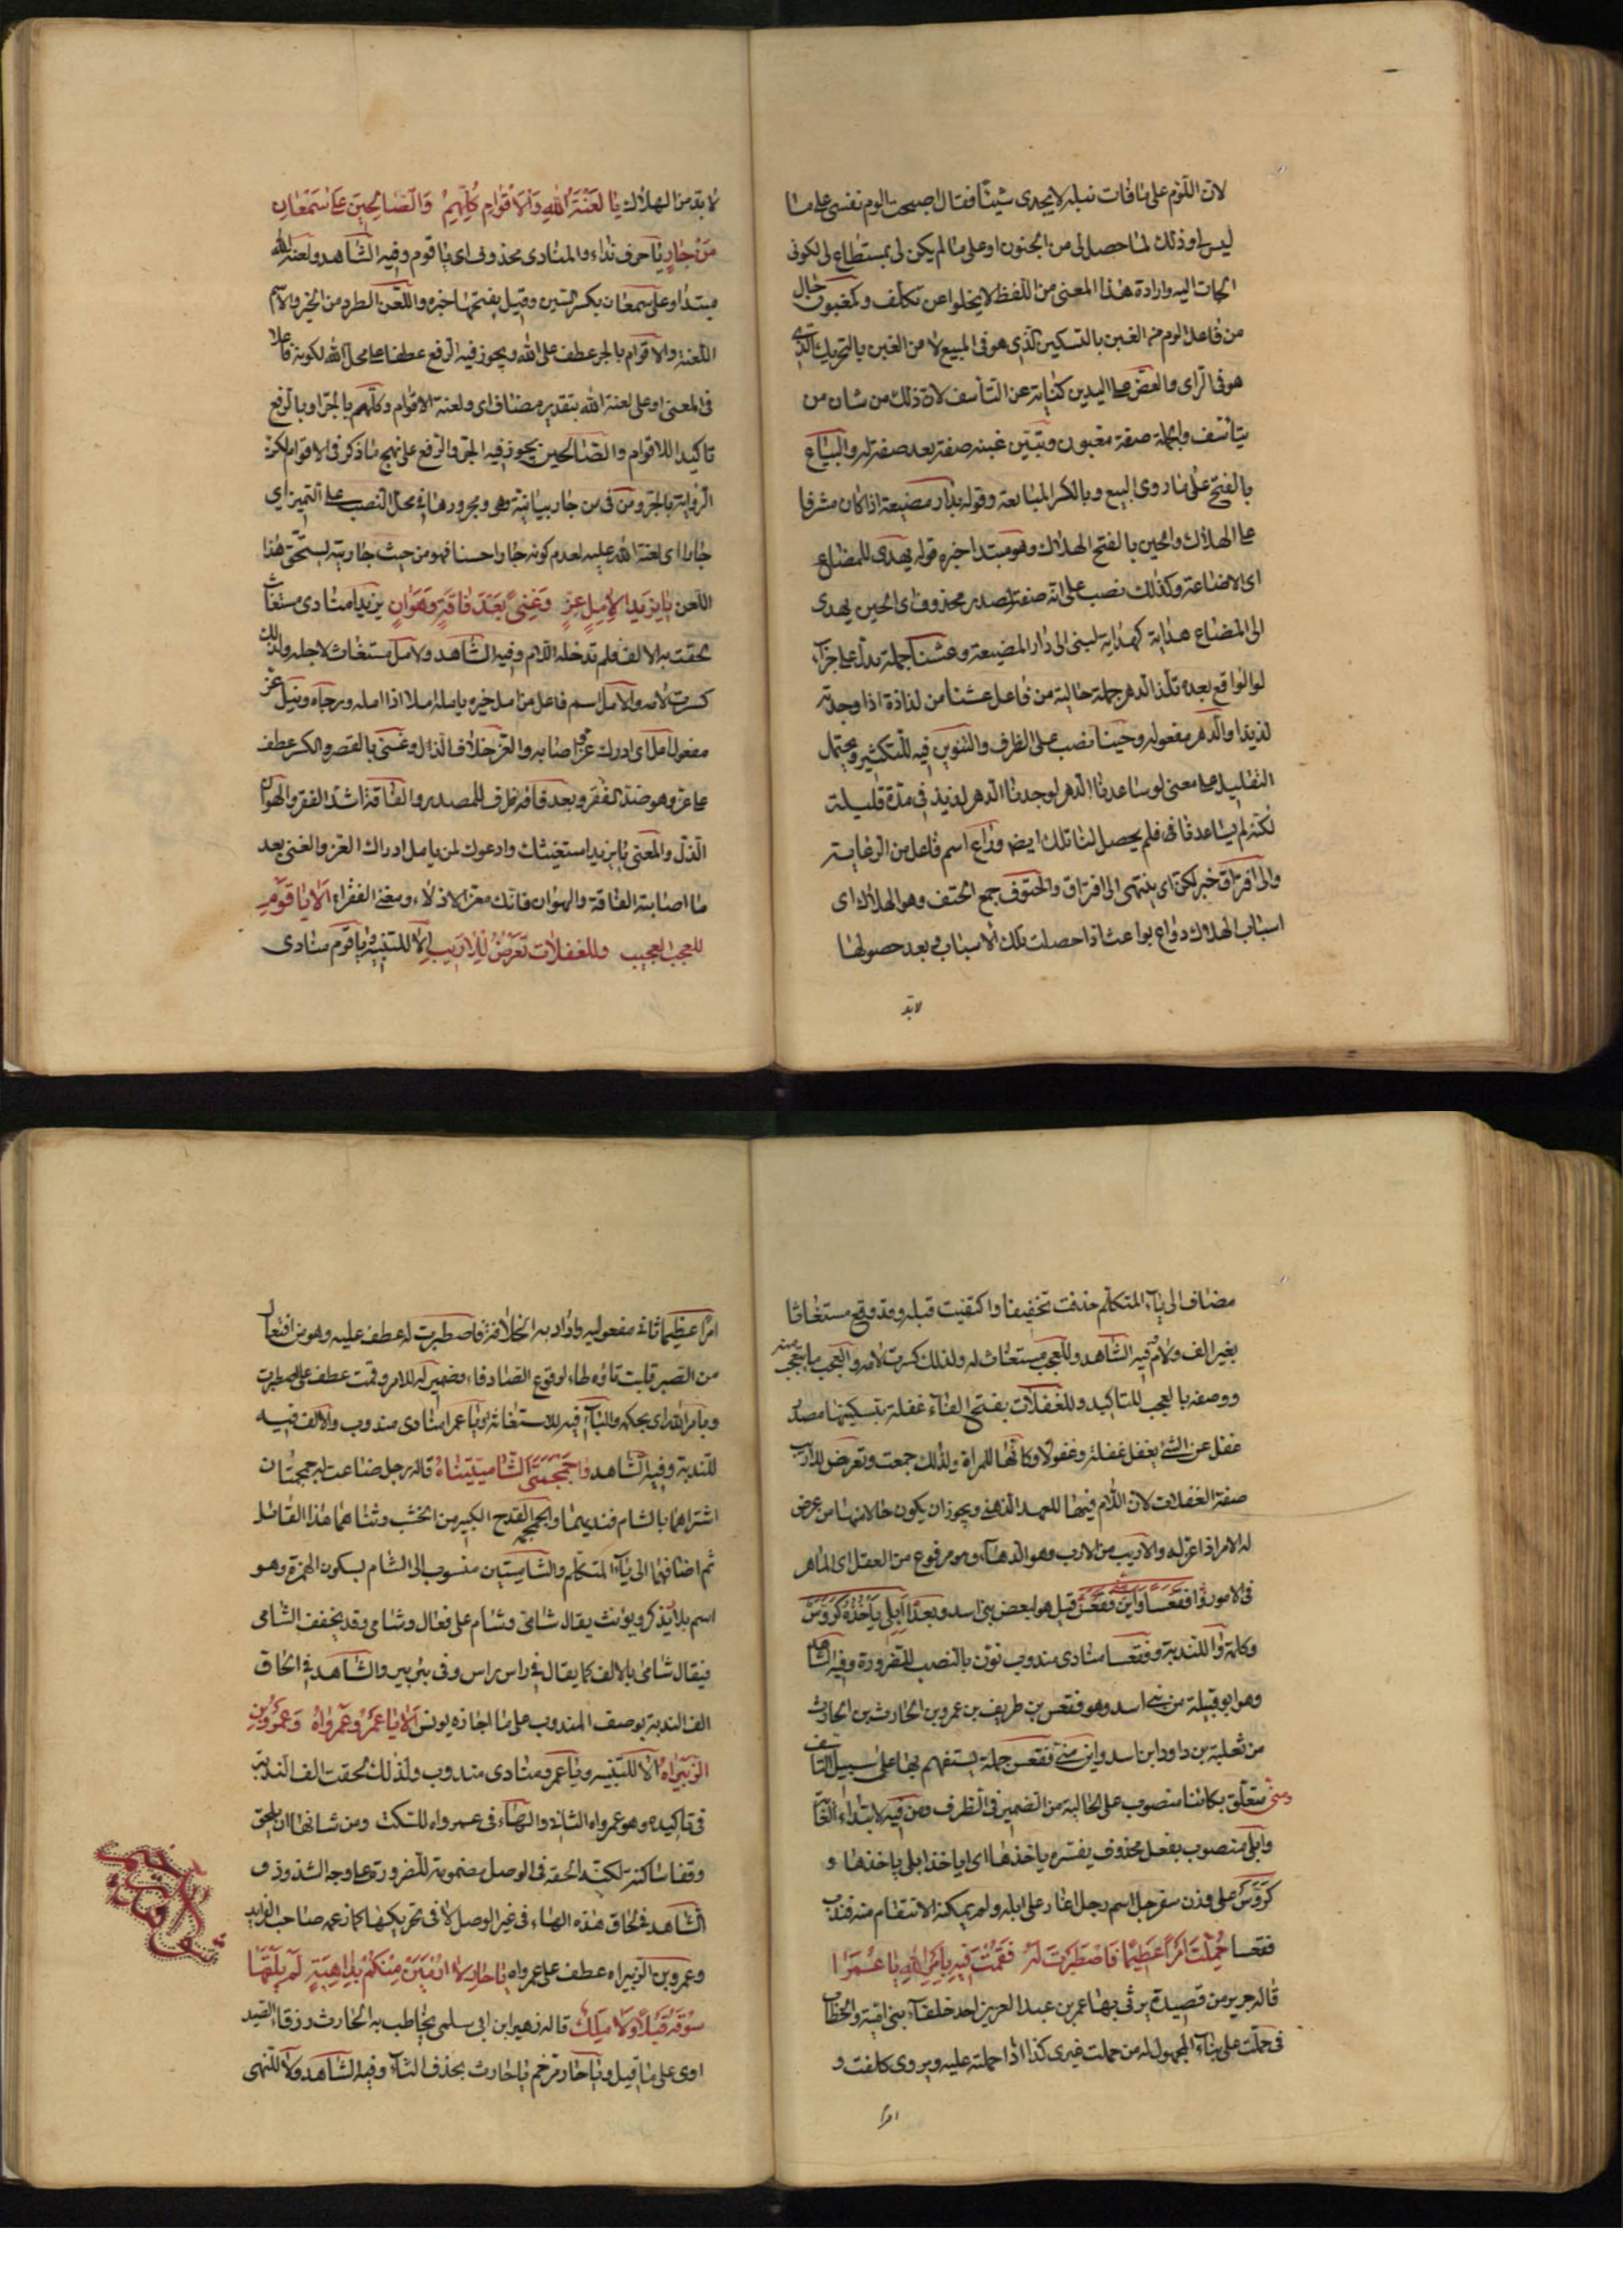 لان اللوم على ما فات نيله لا يجدى شيئا فقال اصبحت الوم نفسى على ما
ليس لى وذلك لما حصل لى من الجنون او على ما لم يكن لى بمستطاع لى لكونى
اليه وارادة هذا المعنى من اللفظ لا يخلوا عن تكلف وكمغبون حال
من فاعل الوم من الغبن بالتسكين الذى هو فى المبيع لا من الغبن بالتحريك الذى
هو فى الراى والعض على اليدين كناية عن التأسف لان ذلك من شان من
يتأسف والجملة صفة مغبون وتبين غبنه صفة بعد صفة له والبياع
بالفتح على ما روى البيع وبالكسر المبايعة وقوله بدار مضيعة اذا كان مشرفا
على الهلاك والحين بالفتح الهلاك وهو مبتدا خبره قوله يهدى للمضاع
اى الاضاعة وكذلك نصب على انه صفة لمصدر محذوف اى الحين يهدى
الى المضاع هداية كهداية لبنى الى دار المضيعة وعشنا جملة يدل على جزاء
لو الواقع بعده تلذ الدهر جملة حالية من فاعل عشنا من لذاذة اذا وجدته
لذيذا والدهر مفعوله وحينا نصب على الظرف والتنوين فيه للتكثير ويحتمل
التقليل على معنى لو ساعدنا الدهر لوجدنا الدهر لذيذ فى مدة قليلة
لكنه لم يساعدنا فى فلم يحصل لنا تلك ايضا وداع اسم فاعل من الرعاية
والى افتراق خبر لكن اى ينتهى الى افتراق والحتوف جمع الحتف وهو الهلاك اى
اسباب الهلاك دواع بواعث اذا حصلت تلك الاسباب فبعد حصولها
لابد
لابد من الهلاك يا لعنة الله والاقوام كلهم والصالحين على سمعان
من جار يا حرف نداء والمنادى محذوف اى يا قوم وفيه الشاهد ولعنة الله
مبتدا وعلى سمعان بكسر السين وقيل بفتحها خبره واللعن الطرد من الخير والاسم
اللعنة والاقوام بالجر عطف على الله ويجوز فيه الرفع عطفا على محل الله لكونه فاعلا
فى المعنى او على لعنة الله بتقدير مضاف اى ولعنة الاقوام وكلهم بالجر او بالرفع
تاكيدا للاقوام والصالحين يجوز فيه الجر والرفع على نهج ما ذكر فى الاقوام لكن
الرواية بالجر ومن فى من جار بيانية وهى ومجرورها فى محل النصب على التميز اى
جارا اى لعنة الله عليه لعدم كونه جارا حسنا فهو من حيث جاريته يستحق هذا
اللعن يا يزيدا لامل نيل عز وغنى بعد فاقة وهوان يزيدا منادى مستغاث
لحقت به الالف فلم تدخله اللام وفيه الشاهد ولامل مستغاث لاجله ولذلك
كسرت لامه والامل اسم فاعل من امل خيره يامله املا اذا امله ورجاه ونيل عز
مفعول امل اى ادرك عز اصابه والعز خلاف الذل وغنى بالقصر والكسر عطف
على عز وهو ضد الفقر وبعد فاقة ظرف للمصدر والفاقة اشد الفقر والهوان
الذل والمعنى يا يزيد استغيثك وادعوك لمن يامل ادراك العز والغنى بعد
ما اصابته الفاقة والهوان فانك معز الاذلاء ومغنى الفقراء الا يا قوم
للعجب العجيب وللغفلات تعرض للاريب الا للتنبيه ويا قوم منادى
مضاف الى ياء المتكلم حذفت تخفيفا واكتفيت قبله وقد وقع مستغاثا
بغير الف ولام فيه الشاهد وللعجب مستغاث له ولذلك كسرت لامه والعجب ما يتعجب منه
ووصفه بالعجيب للتاكيد وللغفلات بفتح الفاء غفلة بتسكينها مصدر
غفل عن الشئ يغفل غفلة وغفولا وكانها للمراة ولذلك جمعت وتعرض للاريب
صفة الغفلات لان اللام فيها للعهد الذهنى ويجوز ان يكون حالا منها من عرض
له الامر اذا عن له والاريب من الارب وهو الدهاء وهو مرفوع من العقل اى الماهر
فى الامور وا فقعسا واين منى فقعس قيل هو لبعض بنى اسد وبعده ا ابلى ياخذه كروس
وكلمة وا للندبة وفقعسا منادى مندوب نون بالنصب للضرورة وفيه الشاهد
وهو ابو قبيلة من بنى اسد وهو فقعس بن طريف بن عمرو بن الحارث بن الحارث
من ثعلبة بن داود ابن اسد واين منى فقعس جملة استفهم بها على سبيل التأسف
ومنى متعلق بكائنا منصوب على الحالية من الضمير فى الظرف ومن فيه لابتداء الغاية
وابلى منصوب بفعل محذوف يفسره ياخذها اى اياخذ ابلى ياخذها و
كروس على وزن سفرجل اسم رجل اغار على ابله ولم يمكنه الانتقام منه فندب
فقعسا حملت امرا عظيما فاصطبرت له فقمت فيه بامر الله يا عمرا
قاله جرير من قصيدة يرثى بها عمر بن عبد العزيز احد خلفاء بنى امية والخطاب
فى حملت على بناء المجهول له من حملت غيرى كذا اذا حملته عليه ويروى كلفت و
امرا
امرا عظيما ثانى مفعوليه واراد به الخلافة فاصطبرت له عطف عليه وهو من افتعال
من الصبر قلبت تاؤه طاء لوقوع الصاد فاء وضمير له للامر وقمت عطف على اصطبرت
وبامر الله اى بحكمه والباء فيه للاستعانة ويا عمرا منادى مندوب والالف فيه
للندبة وفيه الشاهد وا جمجمتى الشاميتيناه قاله رجل ضاعت له جمجمتان
اشتراهما بالشام فندبهما والجمجمة القدح الكبير من الخشب وثناهما هذا القائل
ثم اضافهما الى ياء المتكلم والشاميتين منسوب الى الشام بسكون الهمزة وهو
اسم بلاد يذكر ويونث يقال شامى وشام على فعال وشامى وقد يخفف الشامى
فيقال شامى بالالف كما يقال فى راس راس وفى بئر بير والشاهد فى الحاق
الف الندبة بوصف المندوب على ما اجازه يونس الا يا عمرو عمرواه وعمرو بن
الزبيراه الا للتنبيه ويا عمرو منادى مندوب ولذلك لحقت الف الندبة
فى تاكيده وهو عمرواه الثانى والهاء فى عمرواه للسكت ومن شانها ان يلحق
وقفا ساكنة لكنه الحقه فى الوصل مضمومة للضرورة على وجه الشذوذ و
الشاهد فى لحاق هذه الهاء فى غير الوصل لا فى تحريكها كما زعمه صاحب الفرايد
وعمرو بن الزبيراه عطف على عمرواه يا حار لا ارمين منكم بداهية لم يلقها
سوقة قبلى ولا ملك قاله زهير ابن ابى سلمى يخاطب به الحارث ورقاء الصيداوى
اوى على ما قيل ويا حار مرخم يا حارث بحذف الثاء وفيه الشاهد ولا للنهى